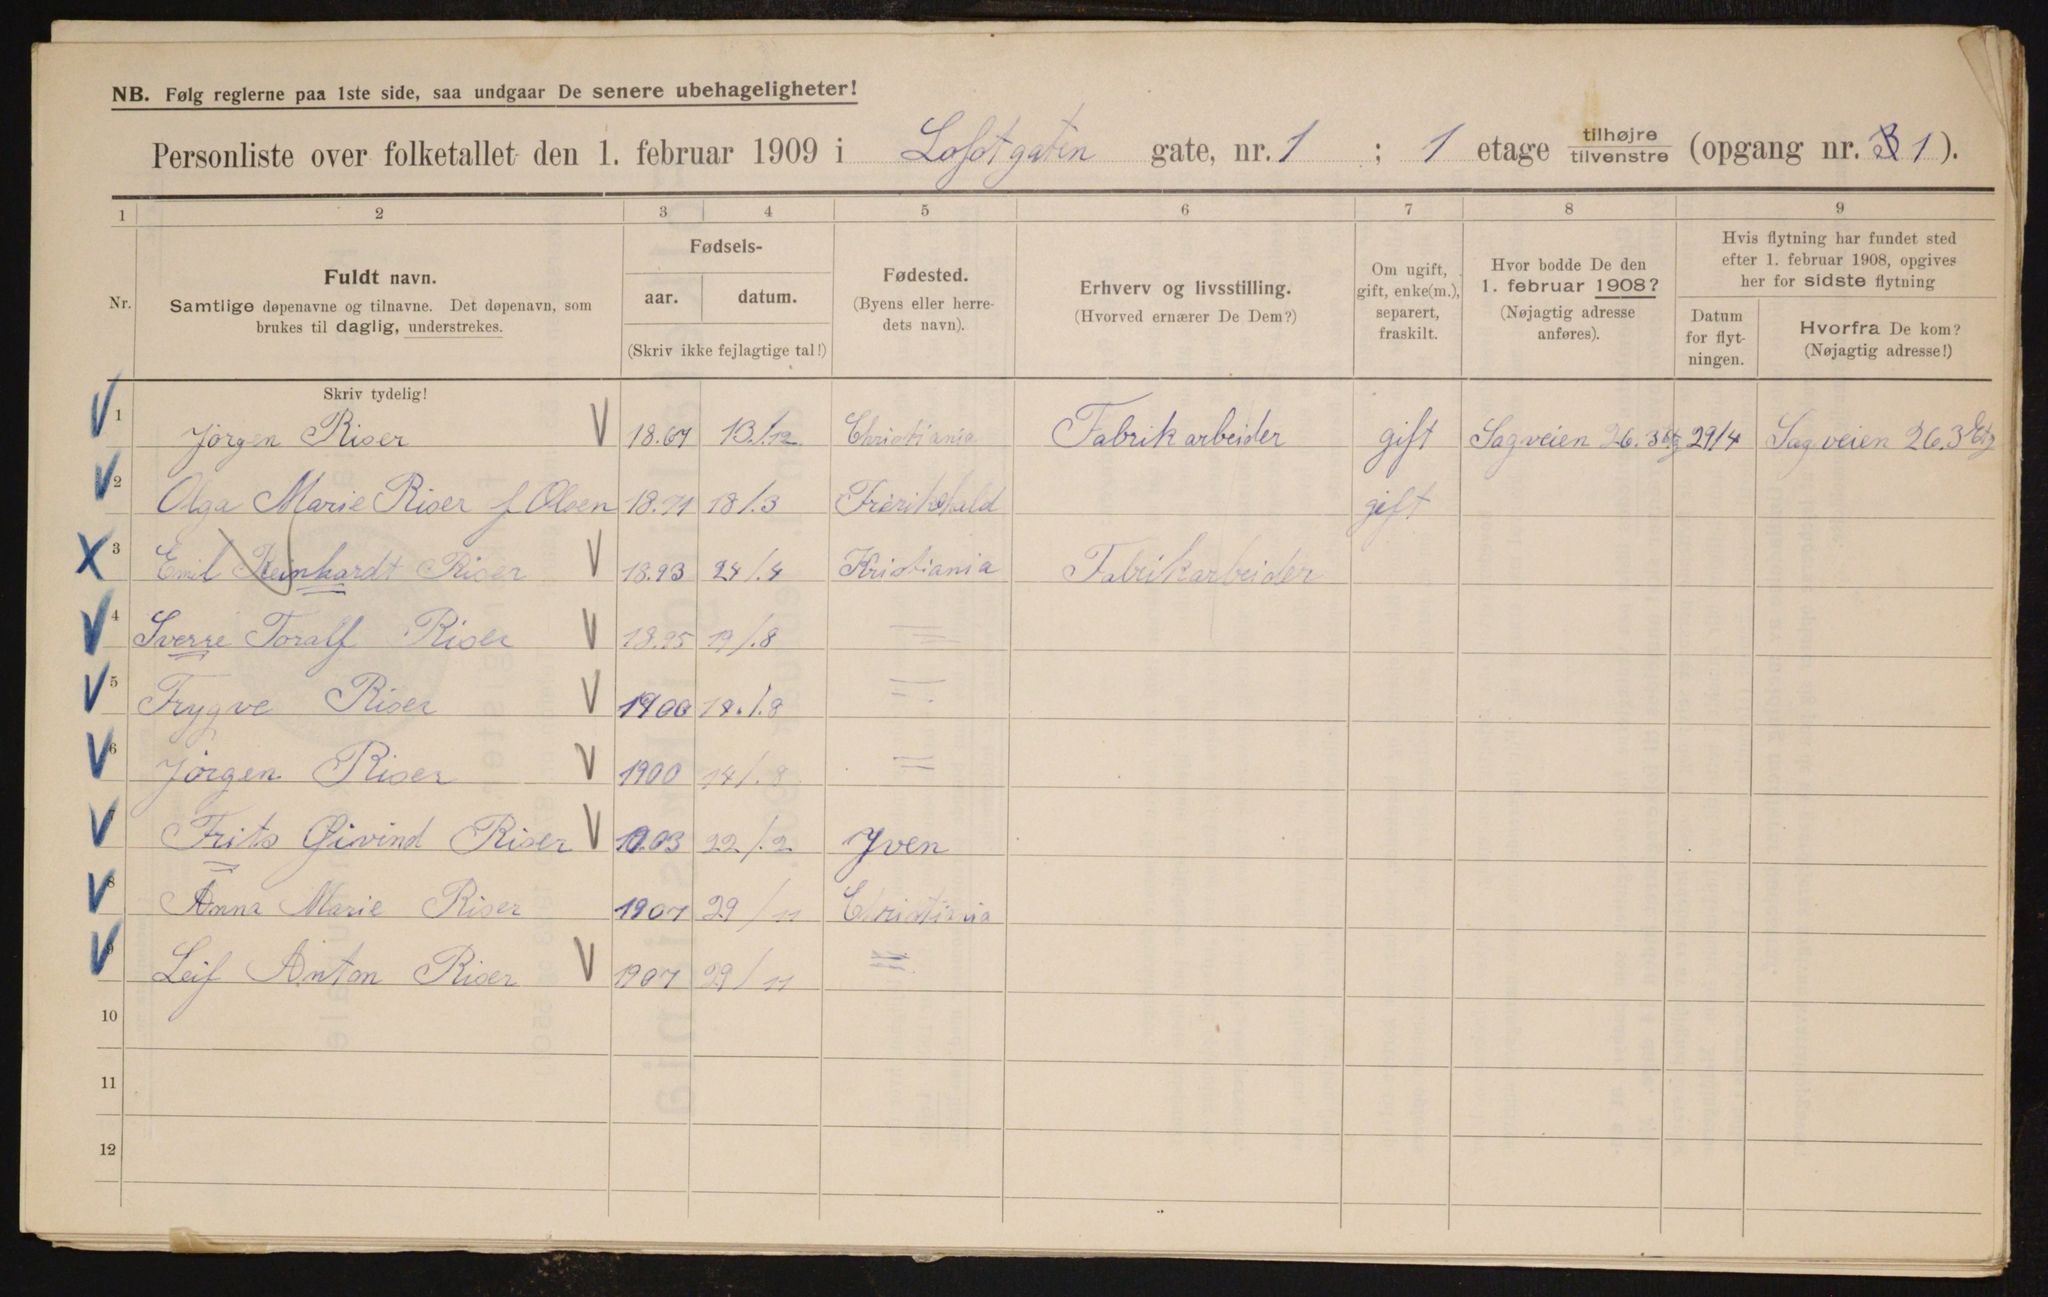 NB. Følg reglerne paa 1ste side, saa undgaar De senere ubehageligheter!
Personliste over folketallet den 1. februar 1909 i Lofotgaten gate, nr. 1 ; 1 etage tilhøjre tilvenstre (opgang nr. 1).
1 2 3 4 5 6 7 8 9
Nr.
Fuldt navn.
Samtlige døpenavne og tilnavne. Det døpenavn, som
brukes til daglig, understrekes.
Skriv tydelig!
Fødsels-
aar. datum.
(Skriv ikke fejlagtige tal!)
Fødested.
(Byens eller herre-
dets navn).
Erhverv og livsstilling.
(Hvorved ernærer De Dem?)
Om ugift,
gift, enke(m.),
separert,
fraskilt.
Hvor bodde De den
1. februar 1908?
(Nøjagtig adresse
anføres).
Hvis flytning har fundet sted
efter 1. februar 1908, opgives
her for sidste flytning
Datum
for flyt-
ningen.
Hvorfra De kom?
(Nøjagtig adresse!)
1 Jørgen Riser V 18.67 13/12 Christiania Fabrikarbeider gift Sagveien 26.3 etg 29/4 Sagveien 26.3 Etg
2 Olga Marie Riser f Olsen 18.71 18/3 Frerikshald gift
3 Emil Reinhardt Riser V 18.93 24/4 Kristiania Fabrikarbeider
4 Sverre Toralf Riser V 18.95 19/8 =
5 Trygve Riser V 1900 18/8 =
6 Jørgen Riser V 1900 14/8 =
Frits Øivind Riser V 1903 22/2 Yven
8 Anna Marie Riser 1907 29/11 Christiania
9 Leif Anton Riser V 1907 29/11 =
10
11
12